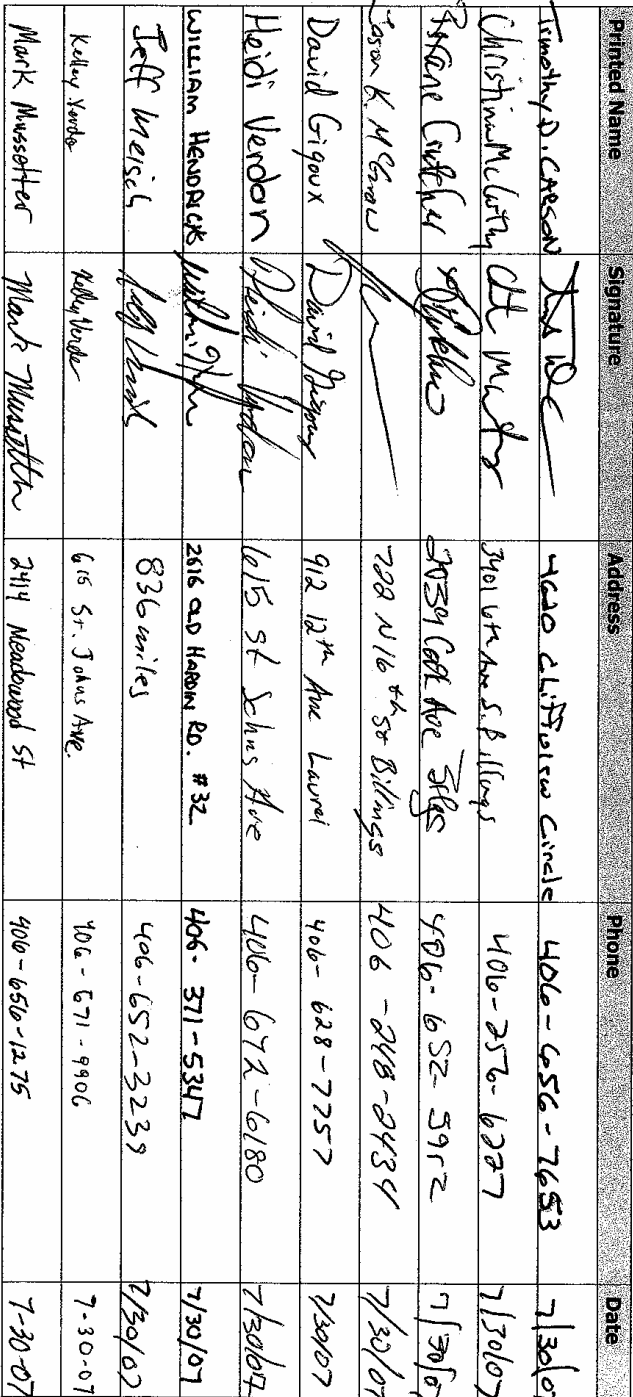 Printed Name Signature Address Phone Date
Timothy D. CARSON 4620 Cliffview Circle 406-656-7653 7/30/0
Christina McCarthy 3401 6th Ave S. Billings 406-256-6227 7/30/07
2039 Cook Ave Blgs 406-652-5952 7/30/0
Jason K McGraw 708 N 16th St Billings 406-248-2434 7/30/07
David Gigoux David Gigoux 912 12th Ave Laurel 406-628-7257 7/30/07
Heidi Verdon Heidi Verdon 615 St Johns Ave 406-672-6180 7/30/07
WILLIAM HENDRICKS 2616 OLD HARDIN RD. #32 406-371-5347 7/30/07
Jeff Meisch 836 miles 406-652-3239 7/30/07
Kelley Verdo Kelley Verdo 615 St. Johns Ave. 406-671-9906 7-30-07
Mark Mussetter Mark Mussetter 2414 Meadowood St 406-656-1275 7-30-07